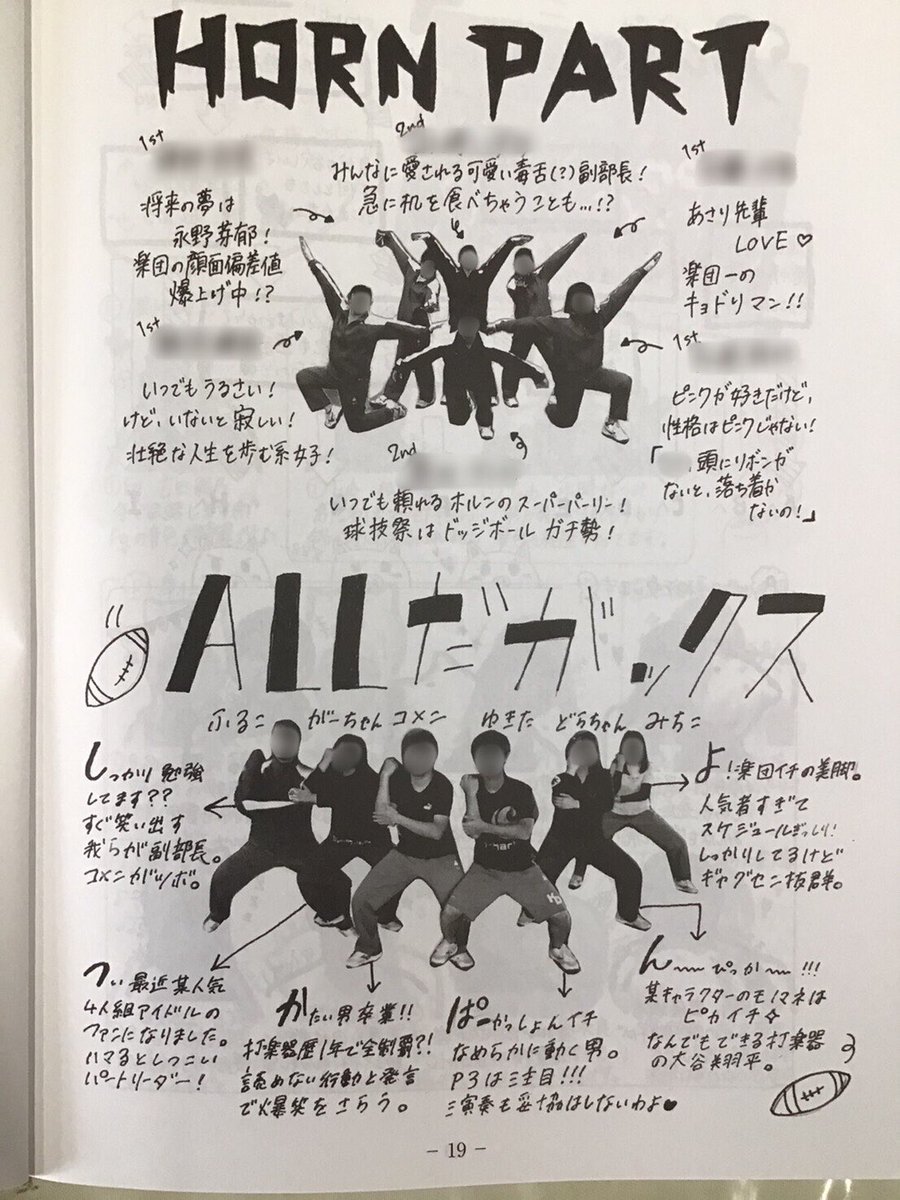 HORN PART
1st
将来の夢は
永野芽郁！
楽団の顔面偏差値
爆上げ中！？
2nd
みんなに愛される可愛い毒舌(？)副部長！
急に机を食べちゃうことも…!？
1st
あさり先輩
LOVE♡
楽団一の
キョドリマン!!
1st
いつでもうるさい！
けど、いないと寂しい！
壮絶な人生を歩む系女子！
2nd
いつでも頼れるホルンのスーパーパーリー！
球技祭はドッジボールガチ勢！
1st
ピンクが好きだけど、
性格はピンクじゃない！
「 、頭にリボンが
ないと、落ち着か
ないの！」
ALLだがックス
ふるこ がーちゃん コメン ゆきた どらちゃん みちこ
しっかり勉強
してます??
すぐ笑い出す
我らが副部長。
コメンがツボ。
よ！楽団イチの美脚。
人気者すぎて
スケジュールぎっしり！
しっかりしてるけど
ギャグセン抜群。
つい最近某人気
4人組アイドルの
ファンになりました。
ハマるとしつこい
パートリーダー！
かたい男卒業!!
打楽器歴1年で全制覇?!
読めない行動と発言
で爆笑をさらう。
ぱーかっしょんイチ
なめらかに動く男。
P3は注目!!!
演奏も妥協はしないわよ♥
ん〜〜ぴっか〜!!!
某キャラクターのモノマネは
ピカイチ☆
なんでもできる打楽器
の大谷翔平。
- 19 -